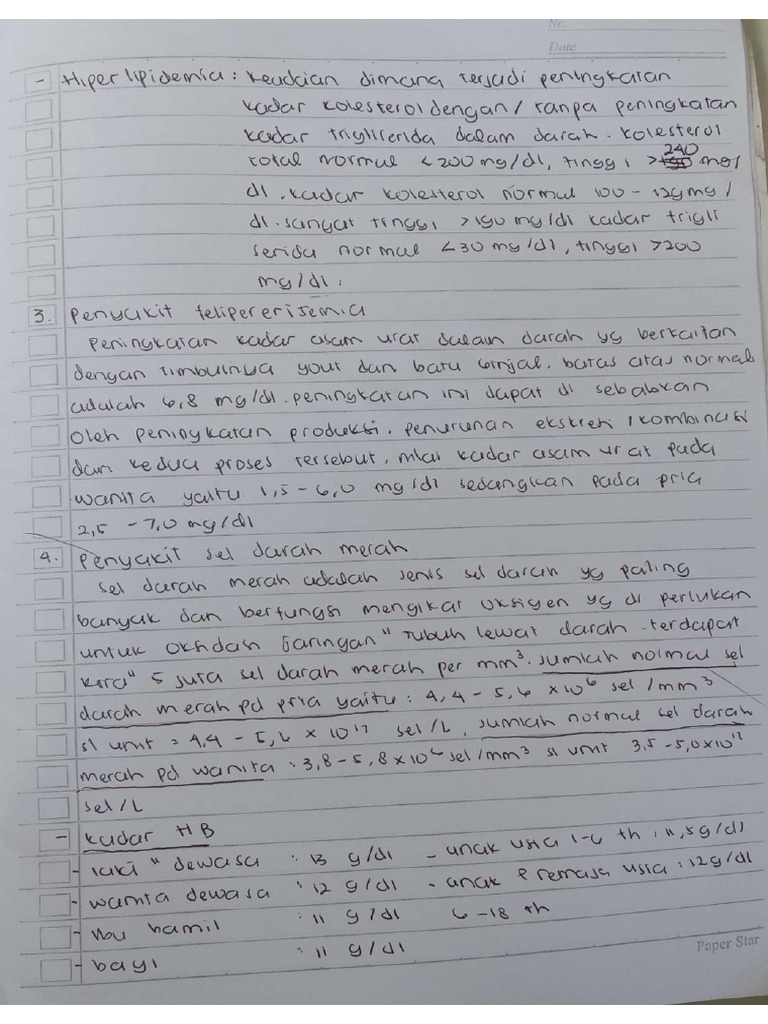 No.
Date
- Hiperlipidemia : keadaian dimana terjadi peningkatan
kadar kolesterol dengan / tanpa peningkatan
kadar trigliserida dalam darah. kolesterol
total normal < 200 mg/dl, tinggi > 240 mg/
dl. kadar kolesterol normal 100 - 129 mg/
dl. sangat tinggi > 190 mg/dl kadar trigli
serida normal < 30 mg/dl, tinggi > 200
mg/dl.
3. Penyakit
Peningkatan kadar asam urat dalam darah yg berkaitan
dengan timbulnya gout dan batu ginjal. batas atas normal
adalah 6,8 mg/dl. peningkatan ini dapat di sebabkan
oleh peningkatan produksi. penurunan ekskresi / kombinasi
dari kedua proses tersebut. nilai kadar asam urat pada
wanita yaitu 1,5 - 6,0 mg/dl sedangkan pada pria
2,5 - 7,0 mg/dl
4. Penyakit sel darah merah
sel darah merah adalah jenis sel darah yg paling
banyak dan berfungsi mengikat oksigen yg di perlukan
untuk oksidasi jaringan" tubuh lewat darah. terdapat
kira" 5 juta sel darah merah per mm³. jumlah normal sel
darah merah pd pria yaitu : 4,4 - 5,6 x 10⁶ sel/mm³
sl unit = 4,4 - 5,6 x 10¹² sel/L. jumlah normal sel darah
merah pd wanita : 3,8 - 5,8 x 10⁶ sel/mm³ sl unit 3,5 - 5,0 x 10¹²
sel/L
- kadar HB
- laki" dewasa : 13 g/dl - anak usia 1-6 th : 11,5 g/dl
- wanita dewasa : 12 g/dl - anak & remaja usia : 12 g/dl
- Ibu hamil : 11 g/dl 6-18 th
- bayi : 11 g/dl
Paper Star